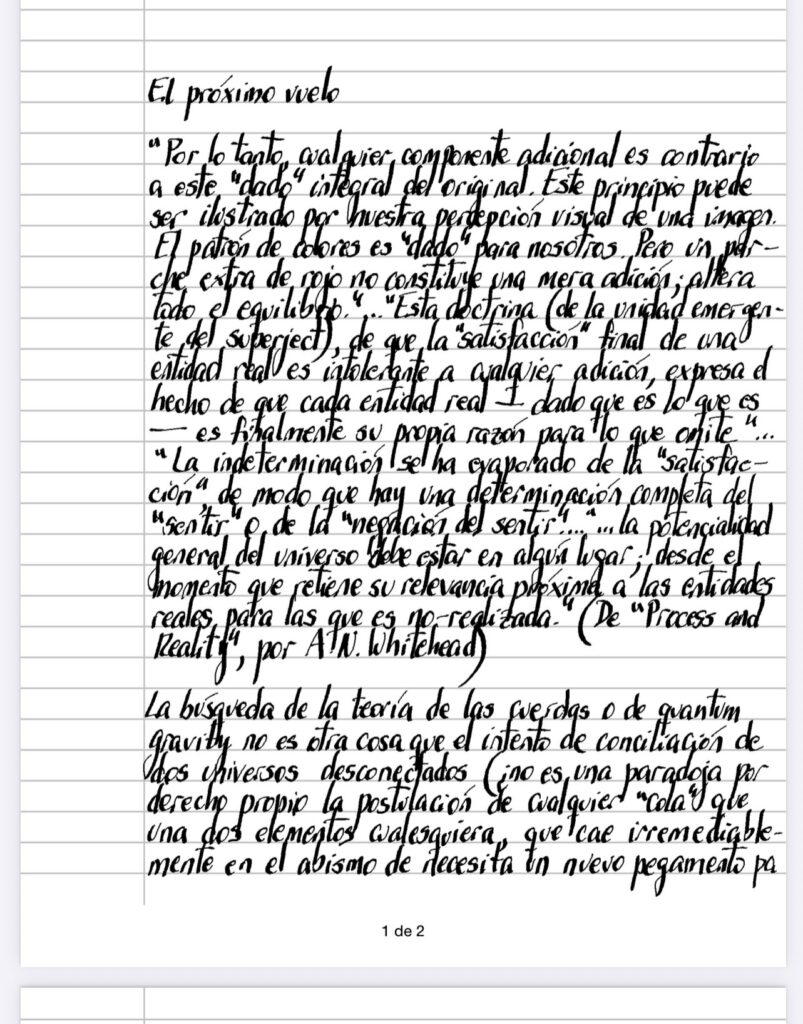 El próximo vuelo
"Por lo tanto, cualquier componente adicional es contrario
a este "dado" integral del original. Este principio puede
ser ilustrado por nuestra percepción visual de una imagen.
El patrón de colores es "dado" para nosotros. Pero un par-
che extra de rojo no constituye una mera adición; altera
todo el equilibrio."..."Esta doctrina (de la unidad emergen-
te del superject), de que la "satisfacción" final de una
entidad real es intolerante a cualquier adición, expresa el
hecho de que cada entidad real — dado que es lo que es
— es finalmente su propia razón para lo que omite "...
"La indeterminación se ha evaporado de la "satisfac-
ción", de modo que hay una determinación completa del
"sentir" o de la "negación del sentir"..."...la potencialidad
general del universo debe estar en algún lugar; desde el
momento que retiene su relevancia próxima a las entidades
reales para las que es no-realizada." (De "Process and
Reality", por A. N. Whitehead)
La búsqueda de la teoría de las cuerdas o de quantum
gravity no es otra cosa que el intento de conciliación de
dos universos desconectados (¿no es una paradoja por
derecho propio la postulación de cualquier "cola" que
una dos elementos cualesquiera, que cae irremediable-
mente en el abismo de necesita un nuevo pegamento pa
1 de 2